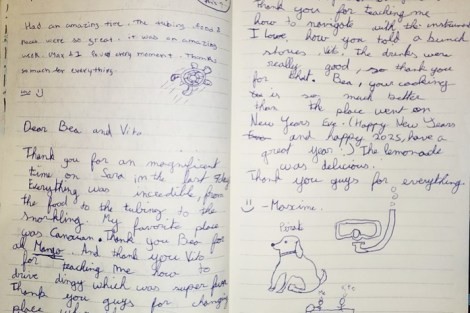 Had an amazing time. The tubing, food &
were so great. it was an amazing
week. every moment. Thanks
so much for everything.
Dear Bea and Vito
Thank you for an magnificent
time on Sera in the last
Everything was incredible, from
the food to the tubing, to the
snorkling. My favorite place
was Canouan. Thank you Bea for
all Mango. And thank you Vito
for teaching me how to
drive dingy which was super fun
Thank you guys for changing
Thank you for teaching me
how to navigate with the
I love how you told a bunch
stories. The drinks were
really good, so thank you
for that. Bea, your cooking
is so much better
than the place went on
New Years Eve. (Happy New Years
and happy 2025, have a
great year.) The lemonade
was delicious.
Thank you guys for everything.
- Maxime.